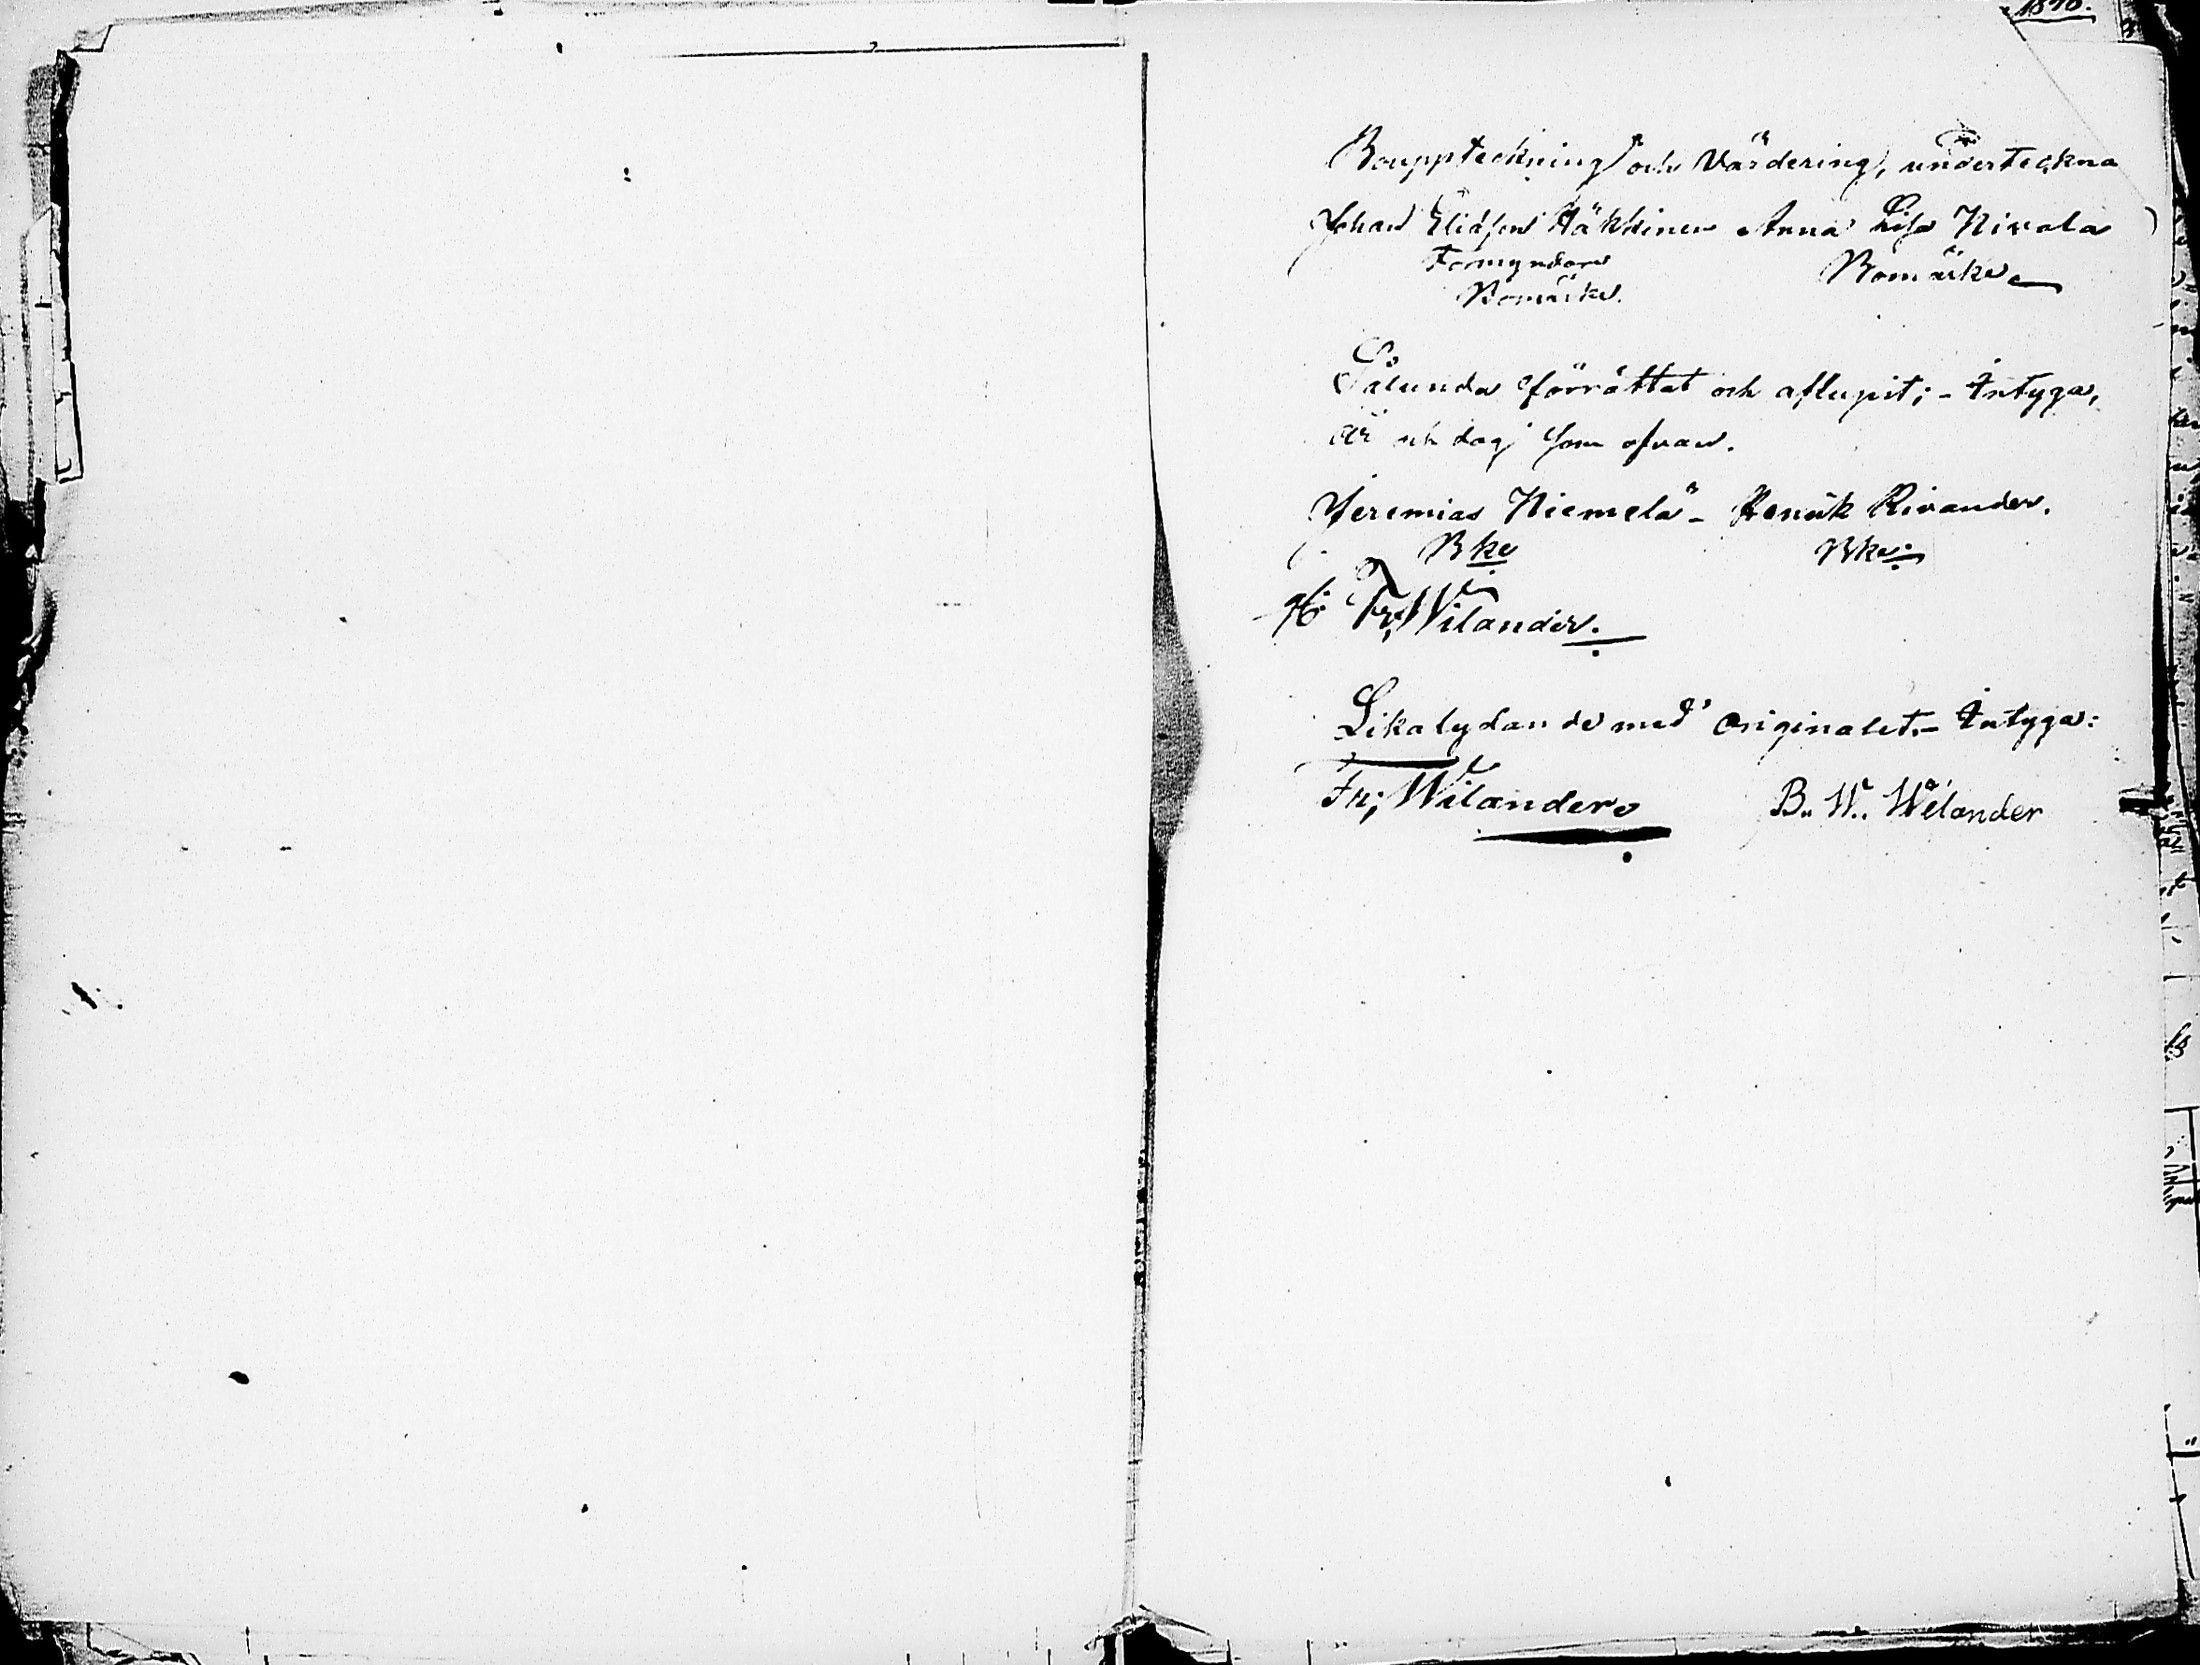 Bouppteckning och Värdering, underteckna
Johan Eliasson Häkkinen Anna Lisa Nivala
Förmyndare Bomärke
Bomärke.
Sålunda förrättat och aflupit; - Intyga,
År och dag som ofvan.
Jeremias Niemelä - Henrik Rivander.
Bke Bke.
Fr, Wilander.
Likalydande med Originalet. - Intyga:
Fr; Wilander B. W. Wilander